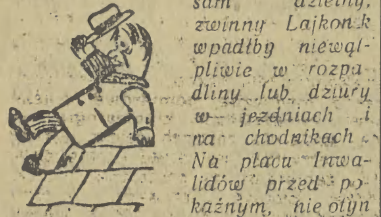 sam dzielny,
zwinny Lajkonik
wpadłby niewąt-
pliwie w rozpa
dliny lub dziury
w jezdniach i
na chodnikach.
Na placu Inwa-
lidów przed po
kaźnym, nie otyn